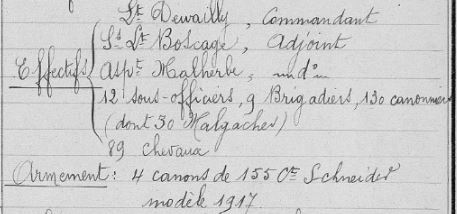 Lt Dewailly, Commandant
Ss Lt Boscage, Adjoint
Effectifs Aspt Malherbe, — d° —
12 sous-officiers, 9 Brigadiers, 130 canonniers
(dont 30 Malgaches)
89 chevaux
Armement : 4 canons de 155 Ct Schneider
modèle 1917.